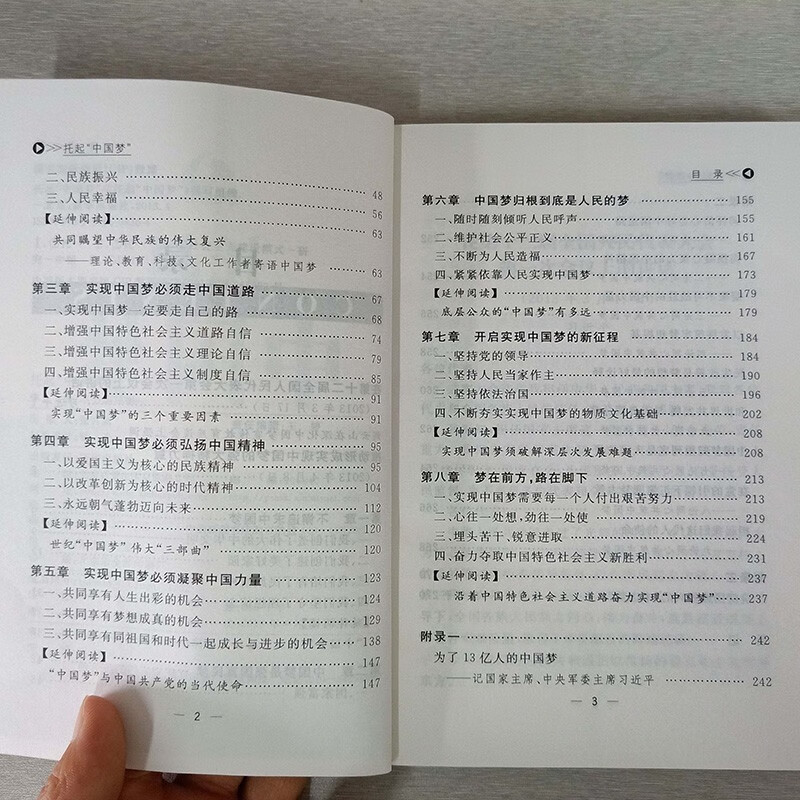 >>>托起“中国梦”
二、民族振兴 …… 48
三、人民幸福 …… 56
【延伸阅读】 …… 63
共同瞩望中华民族的伟大复兴
——理论、教育、科技、文化工作者寄语中国梦 …… 63
第三章 实现中国梦必须走中国道路 …… 67
一、实现中国梦一定要走自己的路 …… 68
二、增强中国特色社会主义道路自信 …… 74
三、增强中国特色社会主义理论自信 …… 79
四、增强中国特色社会主义制度自信 …… 85
【延伸阅读】 …… 91
实现“中国梦”的三个重要因素 …… 91
第四章 实现中国梦必须弘扬中国精神 …… 95
一、以爱国主义为核心的民族精神 …… 95
二、以改革创新为核心的时代精神 …… 104
三、永远朝气蓬勃迈向未来 …… 112
【延伸阅读】 …… 120
世纪“中国梦” 伟大“三部曲” …… 120
第五章 实现中国梦必须凝聚中国力量 …… 123
一、共同享有人生出彩的机会 …… 124
二、共同享有梦想成真的机会 …… 129
三、共同享有同祖国和时代一起成长与进步的机会 …… 138
【延伸阅读】 …… 147
“中国梦”与中国共产党的当代使命 …… 147
— 2 —
目 录<<<
第六章 中国梦归根到底是人民的梦 …… 155
一、随时随刻倾听人民呼声 …… 155
二、维护社会公平正义 …… 161
三、不断为人民造福 …… 167
四、紧紧依靠人民实现中国梦 …… 173
【延伸阅读】 …… 179
底层公众的“中国梦”有多远 …… 179
第七章 开启实现中国梦的新征程 …… 184
一、坚持党的领导 …… 184
二、坚持人民当家作主 …… 190
三、坚持依法治国 …… 196
四、不断夯实实现中国梦的物质文化基础 …… 202
【延伸阅读】 …… 208
实现中国梦须破解深层次发展难题 …… 208
第八章 梦在前方,路在脚下 …… 213
一、实现中国梦需要每一个人付出艰苦努力 …… 213
二、心往一处想,劲往一处使 …… 219
三、埋头苦干、锐意进取 …… 227
四、奋力夺取中国特色社会主义新胜利 …… 231
【延伸阅读】 …… 237
沿着中国特色社会主义道路奋力实现“中国梦” …… 237
附录一 …… 242
为了13亿人的中国梦
——记国家主席、中央军委主席习近平 …… 242
— 3 —